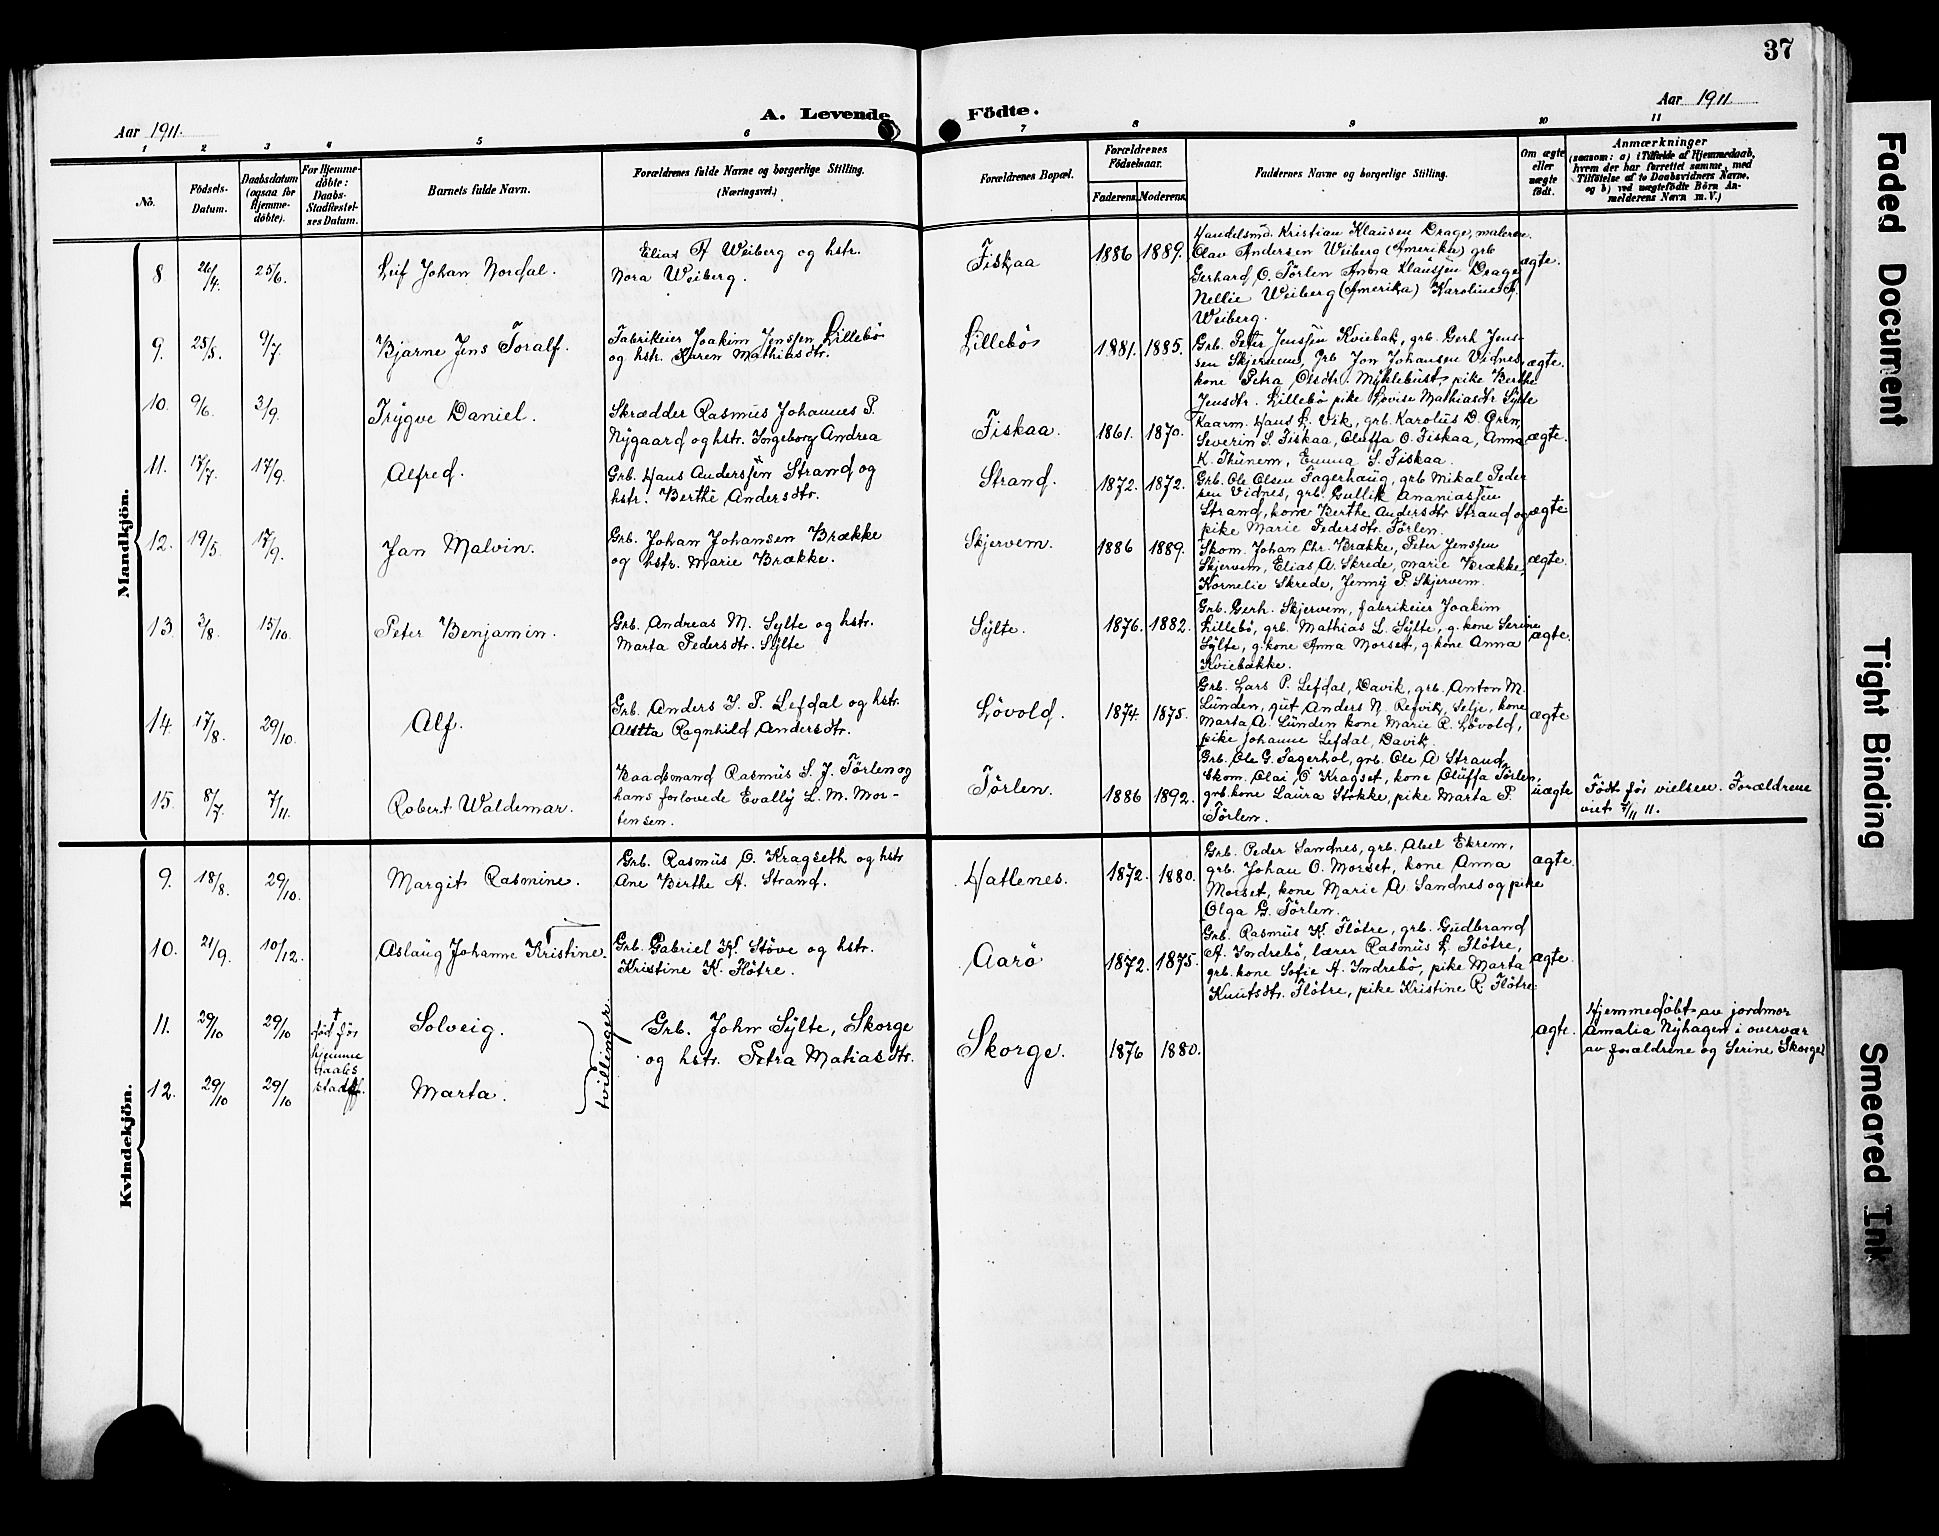 37
Aar 1911.
A. Levende Födte.
Aar 1911
1 2 3 4 5 6 7 8 9 10 11
No.
Födsels-
Datum.
Daabsdatum
(ogsaa for
Hjemme-
döbte).
For Hjemme-
döbte:
Daabs-
Stadfæstel-
ses Datum.
Barnets fulde Navn.
Forældrenes fulde Navne og borgerlige Stilling.
(Næringsvei.)
Forældrenes Bopæl.
Forældrenes
Födselsaar.
Faderens. Moderens.
Faddernes Navne og borgerlige Stilling.
Om ægte
eller
uægte
födt.
Anmærkninger
(saasom: a) i Tilfælde af Hjemmedaab,
hvem der har forrettet samme, med
Tilföielse af to Daabsvidners Navne,
og b) ved uægtefödte Börn An-
melderens Navn m. V.)
Mandkjön.
8 26/4. 25/6. Leif Johan Nordal.
Elias A Weiberg og hstr.
Nora Weiberg.
Fiskaa 1886 1889.
Handelsmd. Kristian Klausen Drage, maleren
Olav Andersen Weiberg (Amerika) grb
Gerhard O. Törlen Anna Klaussen Drage
Nellie Weiberg (Amerika) Karoline A.
Weiberg.
ægte.
9. 25/5. 9/7. Bjarne Jens Toralf.
Fabrikeier Joakim Jenssen Lillebö
og hstr. Karen Mathiasdtr.
Lillebö 1881. 1885.
Grb. Peter Jenssen Kviebak, grb. Gerh Jens-
sen Skjervem, Grb Jon Johansen Vidnes,
kone Petra Olsdtr. Myklebust, pike Berthe
Jensdtr. Lillebö pike Lovise Mathiasdtr Sylte
ægte.
10. 9/6. 3/9. Trygve Daniel.
Skrædder Rasmus Johannes P.
Nygaard og hstr. Ingeborg Andrea
Fiskaa. 1861. 1870.
Kaarm. Hans L. Vik, grb. Karolus D. Gren,
Severin S. Fiskaa, Oluffa O. Fiskaa, Anna
K. Thunem, Emma S. Fiskaa.
ægte.
11. 17/7. 17/9. Alfred.
Grb. Hans Anderssen Strand og
hstr. Berthe Andersdtr.
Strand. 1872. 1872.
Grb. Ole Olsen Fagerhaug, grb Mikal Peder
sen Vidnes, grb. Gullik Ananiassen
Strand, kone Berthe Andersdtr Strand og
pike Marie Pedersdtr. Törlen.
ægte
12. 19/5. 17/9. Jan Malvin.
Grb. Johan Johansen Brække
og hstr. Marie Brække.
Skjervem. 1886 1889.
Skom. Johan Chr. Brække, Peter Jenssen
Skjervem, Elias A. Skrede, Marie Brække,
Kornelie Skrede, Jenny P. Skjervem.
ægte
13. 3/8. 15/10. Peter Benjamin.
Grb. Andreas M. Sylte og hstr.
Marta Pedersdtr. Sylte
Sylte. 1876. 1882.
Grb. Gerh. Skjervem, fabrikeier Joakim
Lillebö, grb. Mathias L. Sylte, g. kone Serine
Sylte, g. kone Anna Morset, g kone Anna
Kviebakke.
ægte.
14. 17/8. 29/10. Alf.
Grb. Anders J. P. Lefdal og hstr.
Ragnhild Andersdtr.
Lövold. 1874. 1875.
Grb. Lars P. Lefdal, Davik, grb. Anton M.
Lunden, gut Anders N. Refvik, Selje, kone
Marta A. Lunden kone Marie R. Lövold,
pike Johanne Lefdal, Davik
ægte
15. 8/7. 7/11. Robert Waldemar.
Baadsmand Rasmus S. J. Törlen og
hans forlovede Evally L. M. Mor-
tensen.
Törlen. 1886 1892.
Grb. Ole G. Fagerhol, grb. Ole A Strand,
Skom. Olai O Kragset, kone Oluffa Törlen,
grb. kone Laura Stokke, pike Marta P.
Törlen.
uægte
Födt för vielsen. Forældrene
viet 7/11 11.
Kvindekjön.
9. 18/8. 29/10. Margit Rasmine.
Grb. Rasmus O. Kragseth og hstr
Ane Birthe A. Strand.
Hatlenes. 1872. 1880.
Grb. Peder Sandnes, grb. Abel Ekrem,
grb. Johan O. Morset, kone Anna
Morset, kone Marie A Sandnes og pike
Olga G. Törlen.
ægte.
10. 21/9. 10/12. Aslaug Johanne Kristine.
Grb. Gabriel K. Stöve og hstr.
Kristine K. Flötre.
Aarö 1872. 1875.
Grb. Rasmus K. Flötre, grb. Gudbrand
A. Indrebö, lærer Rasmus L. Flötre,
grb. kone Sofie A. Indrebö, pike Marta
Knutsdtr. Flötre, pike Kristine R. Flötre.
ægte.
11. 29/10 29/10 † död för
hjemme
daabs
stadff.
Solveig.
tvillinger
Grb. John Sylte, Skorge
og hstr. Petra Matiasdtr.
Skorge. 1876 1880.
ægte.
Hjemmedöbt av jordmor
Amalia Nyhagen i overvær
av forældrene og Serine Skorge.
12. 29/10 29/10 Marta.
Faded Document
Tight Binding
Smeared Ink